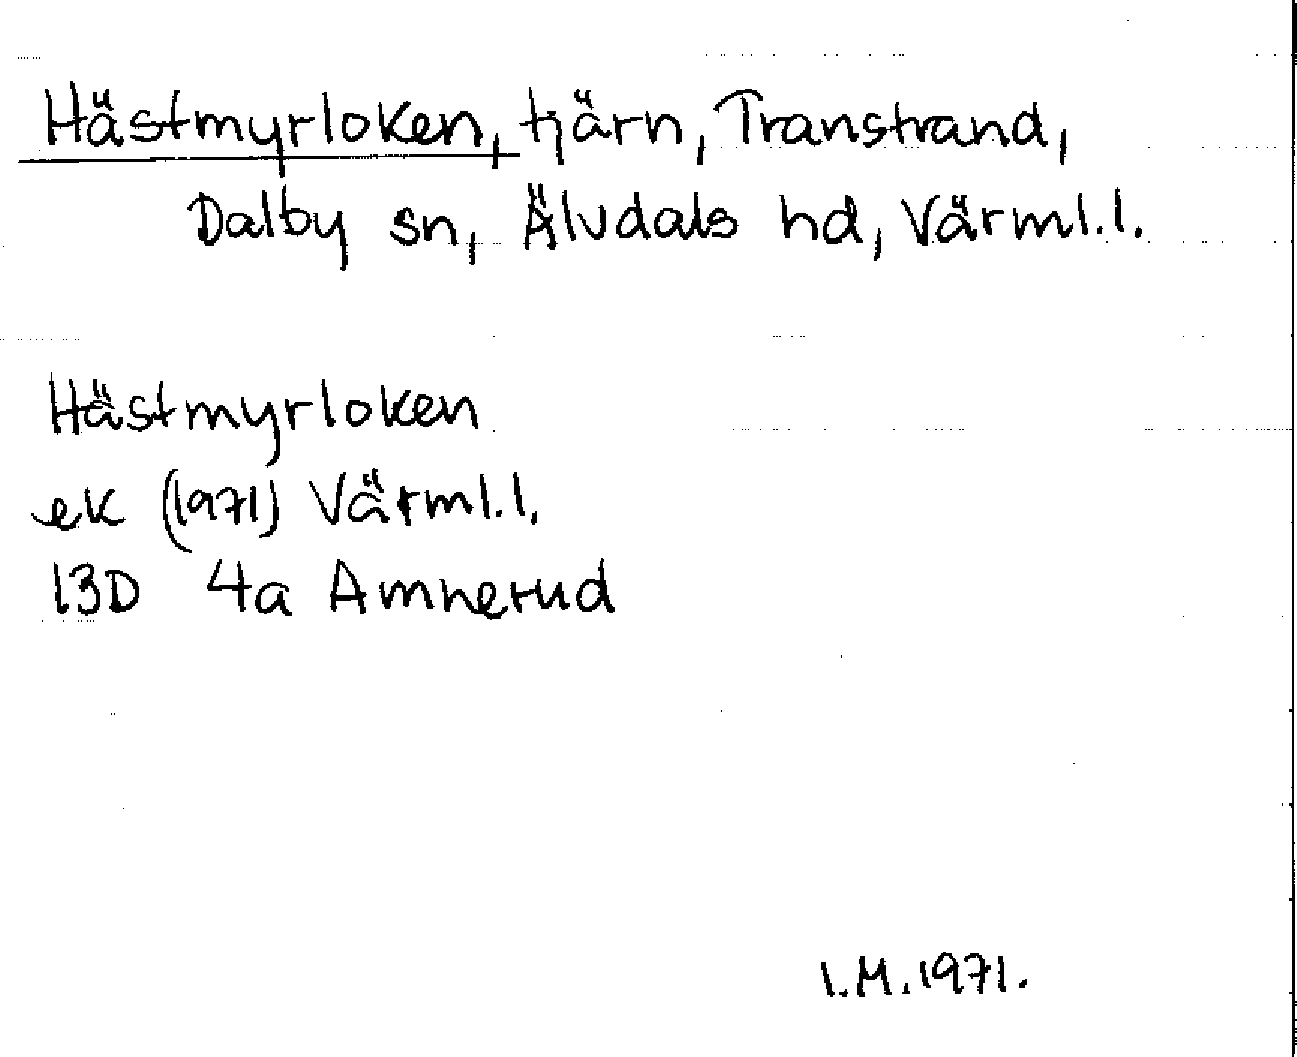 Hästmyrloken, tjärn, Transtrand,
Dalby sn, Älvdals hd, Värml.l.
Hästmyrloken
ek (1971) Värml.l.
13D 4a Amnerud
I.M.1971.